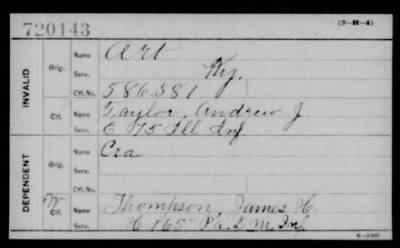 720143 (3-H-4)
INVALID
Orig. Name Art
Serv. Ky.
Ctf. No. 586.381
Ctf. Name Taylor, Andrew J.
Serv. E 75 Ill Inf
DEPENDENT
Orig. Name Cra
Serv.
Ctf. No.
W Ctf. Name Thompson, James H.
Serv. H 165" Pa. D. M. Inf